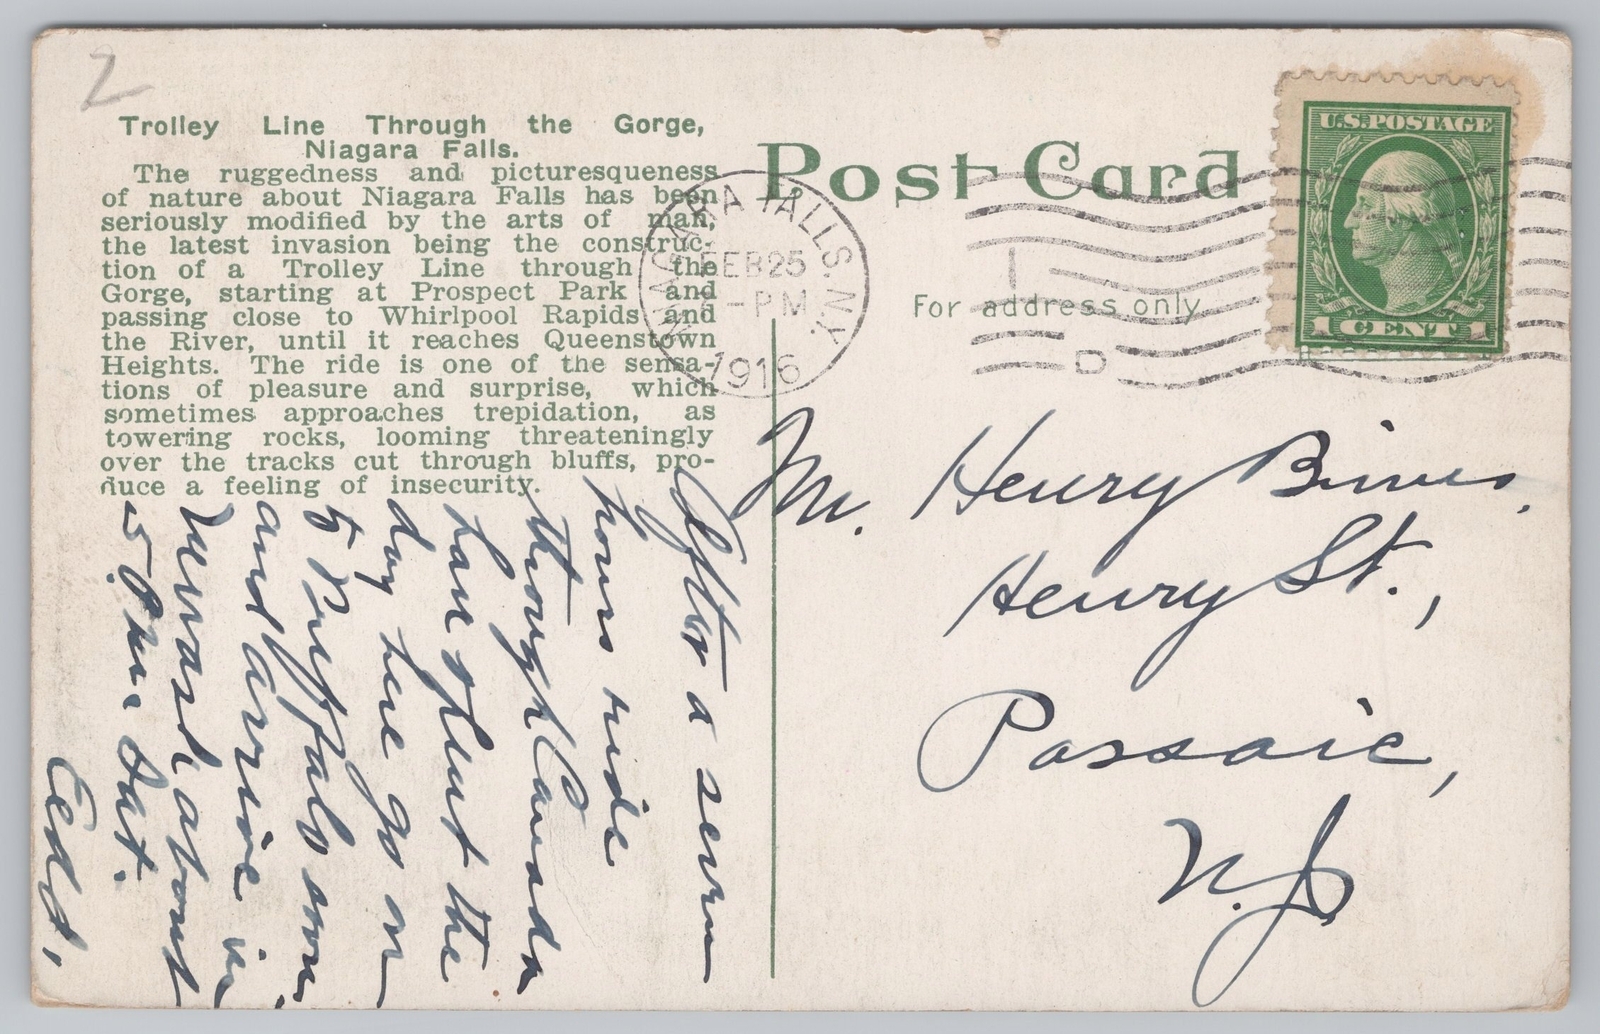 2
Trolley Line Through the Gorge,
Niagara Falls.
The ruggedness and picturesqueness
of nature about Niagara Falls has been
seriously modified by the arts of man,
the latest invasion being the construc-
tion of a Trolley Line through the
Gorge, starting at Prospect Park and
passing close to Whirlpool Rapids and
the River, until it reaches Queenstown
Heights. The ride is one of the sensa-
tions of pleasure and surprise, which
sometimes approaches trepidation, as
towering rocks, looming threateningly
over the tracks cut through bluffs, pro-
duce a feeling of insecurity.
After a seven
hours ride
through Canada
have spent the
day here go on
to Buffalo soon
and arrive in
Newark about
5 P.M. Sat.
Post Card
For address only
NIAGARA FALLS. N.Y.
FEB 25
-PM
1916
U.S. POSTAGE
1 CENT 1
Mr. Henry
Henry St.,
Passaic,
N.J.